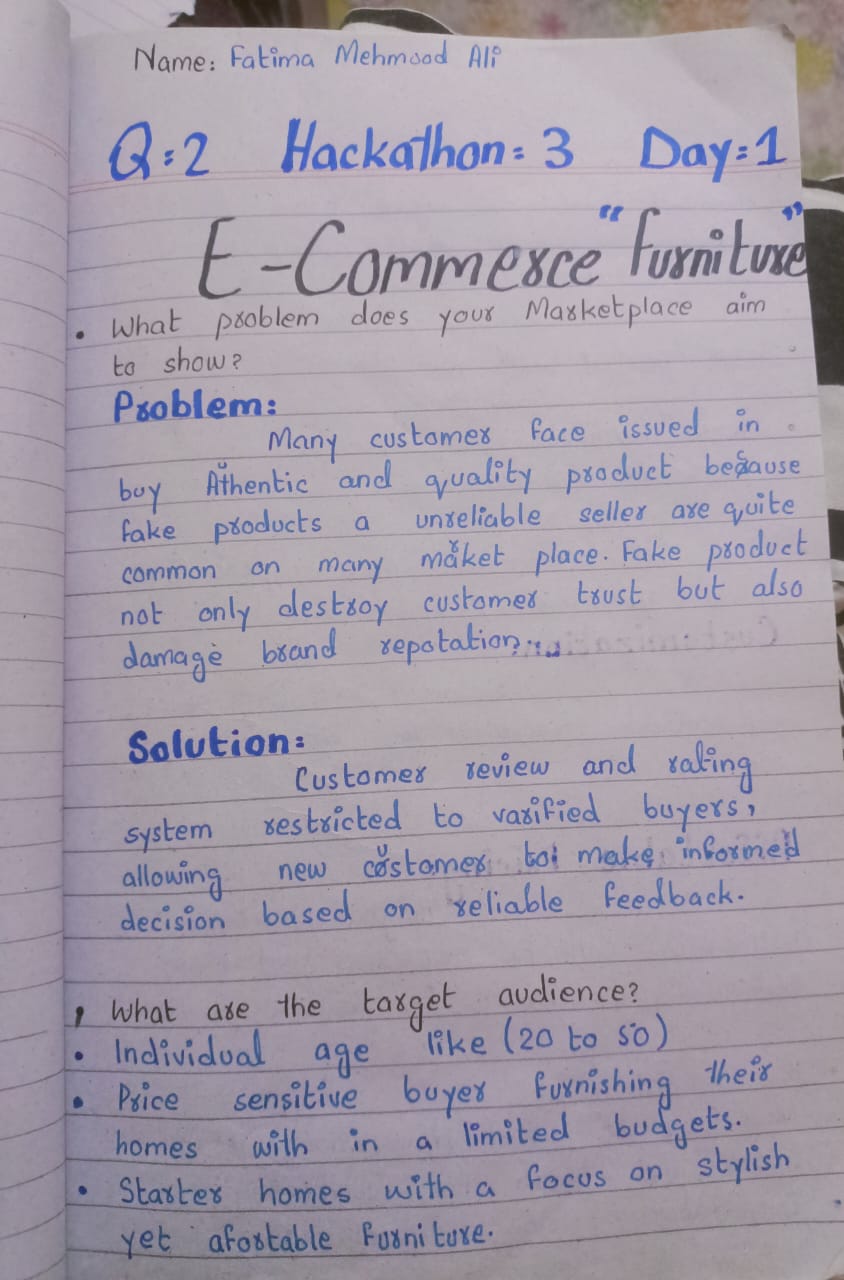 Name: Fatima Mehmood Ali
Q:2 Hackathon: 3 Day:1
E-Commerce "Furniture"
• What problem does your Marketplace aim
to show?
Problem:
Many customer face issued in
buy Authentic and quality product because
fake products a unreliable seller are quite
common on many market place. Fake product
not only destroy customer trust but also
damage brand repotation.
Solution:
Customer review and rating
system restricted to varified buyers,
allowing new customer to make informed
decision based on reliable feedback.
, What are the target audience?
• Individual age like (20 to 50)
• Price sensitive buyer furnishing their
homes with in a limited budgets.
• Starter homes with a focus on stylish
yet afortable furniture.